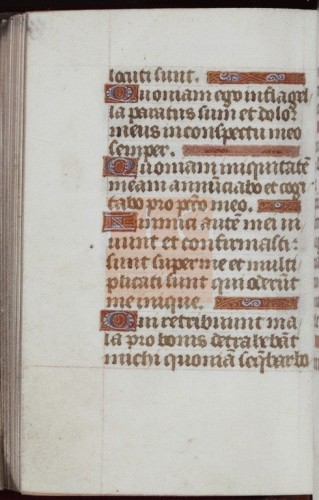 locuti sunt.
Quoniam ego in flagel
la paratus sum et dolor
meus in conspectu meo
semper.
Quoniam iniquitatē
meam annūciabo et cogi
tabo pro pctō meo.
Inimici autē mei vi
uunt et confirmati
sunt super me et multi
plicati sunt qui oderūt
me inique.
Qui retribuunt ma
la pro bonis detrahebāt
michi quoniā seq̄bar bo